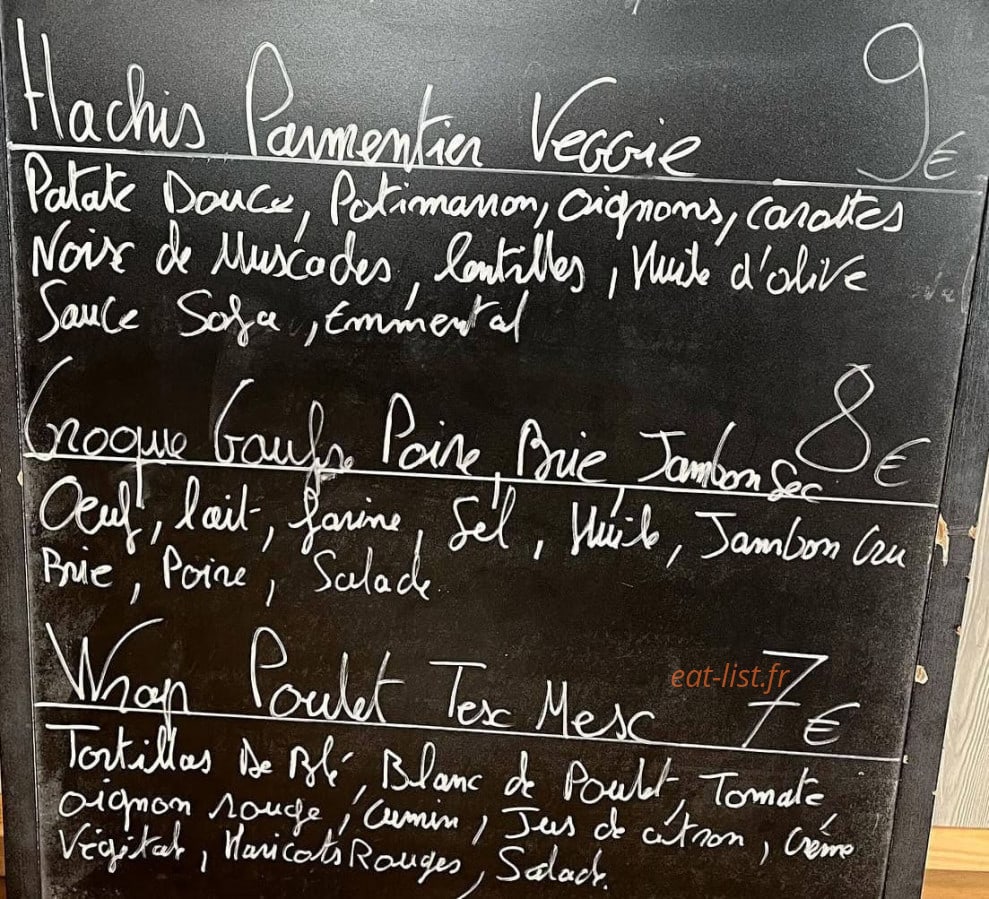 Hachis Parmentier Veggie 9€
Patate Douce, Potimarron, oignons, carottes
Noix de Muscades, lentilles, Huile d'olive
Sauce Soja, Emmental
Croque Gaufre Poire, Brie Jambon Sec 8€
Oeuf, lait, farine, Sel, Huile, Jambon Cru
Brie, Poire, Salade
Wrap Poulet Tex Mex 7€
eat-list.fr
Tortillas De Blé, Blanc de Poulet, Tomate
oignon rouge, Cumin, Jus de citron, Crème
Végétal, Haricots Rouges, Salade.